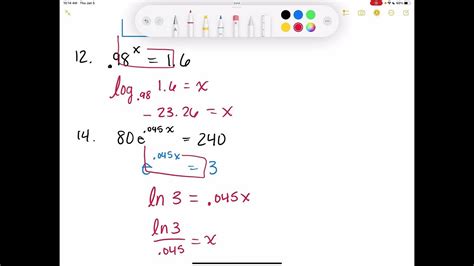 10:14 AM Thu Jan 5
12. .98^x = 1.6
log_.98 1.6 = x
- 23.26 = x
14. 80e^.045x = 240
e^.045x = 3
ln 3 = .045x
ln 3 / .045 = x